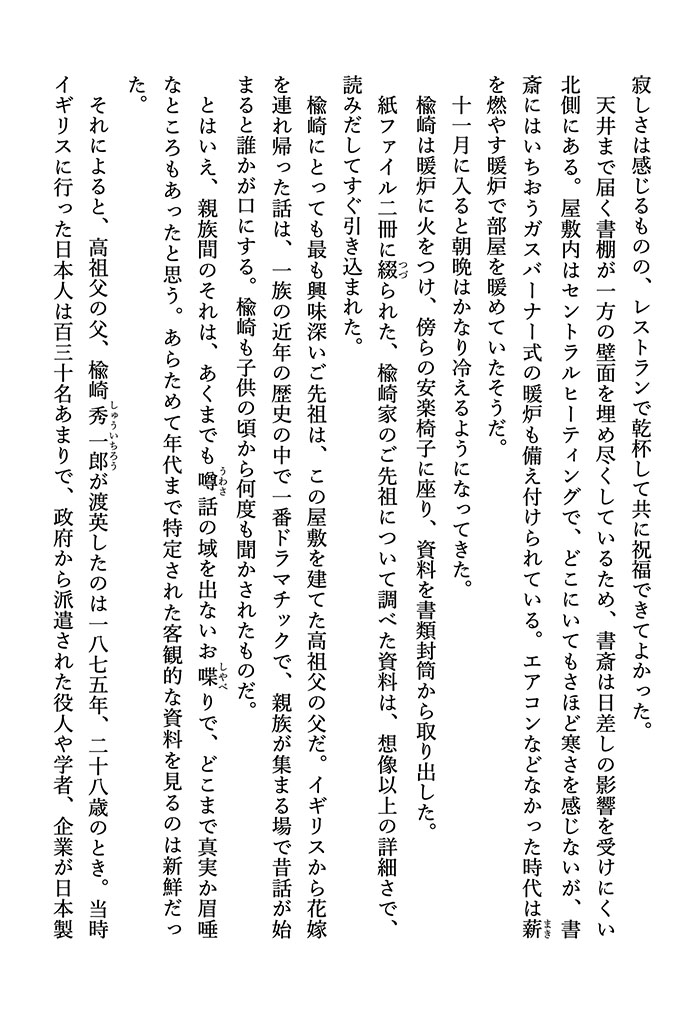 寂しさは感じるものの、レストランで乾杯して共に祝福できてよかった。
天井まで届く書棚が一方の壁面を埋め尽くしているため、書斎は日差しの影響を受けにくい
北側にある。屋敷内はセントラルヒーティングで、どこにいてもさほど寒さを感じないが、書
斎にはいちおうガスバーナー式の暖炉も備え付けられている。エアコンなどなかった時代は薪まき
を燃やす暖炉で部屋を暖めていたそうだ。
十一月に入ると朝晩はかなり冷えるようになってきた。
楡崎は暖炉に火をつけ、傍らの安楽椅子に座り、資料を書類封筒から取り出した。
紙ファイル二冊に綴つづられた、楡崎家のご先祖について調べた資料は、想像以上の詳細さで、
読みだしてすぐ引き込まれた。
楡崎にとっても最も興味深いご先祖は、この屋敷を建てた高祖父の父だ。イギリスから花嫁
を連れ帰った話は、一族の近年の歴史の中で一番ドラマチックで、親族が集まる場で昔話が始
まると誰かが口にする。楡崎も子供の頃から何度も聞かされたものだ。
とはいえ、親族間のそれは、あくまでも噂うわさ話の域を出ないお喋しゃべりで、どこまで真実か眉唾
なところもあったと思う。あらためて年代まで特定された客観的な資料を見るのは新鮮だっ
た。
それによると、高祖父の父、楡崎秀一郎しゅういちろうが渡英したのは一八七五年、二十八歳のとき。当時
イギリスに行った日本人は百三十名あまりで、政府から派遣された役人や学者、企業が日本製